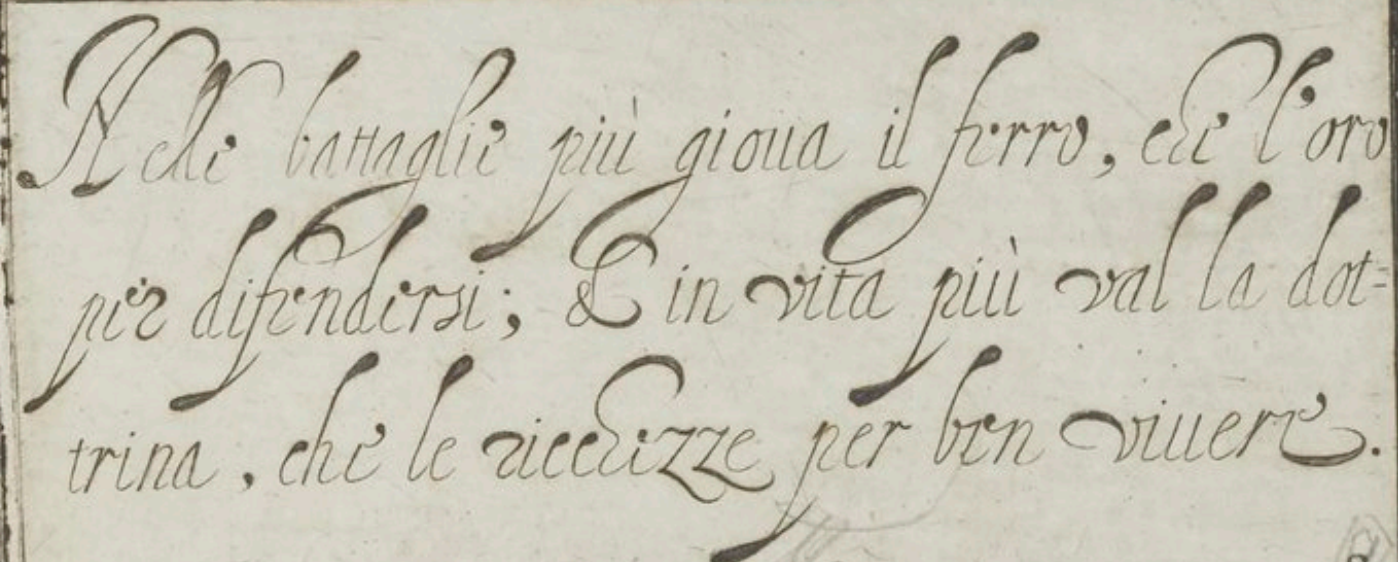 Nelle battaglie più gioua il ferro, che l'oro
per difendersi; & in vita più val la dot-
trina, che le ricchezze per ben viuere.